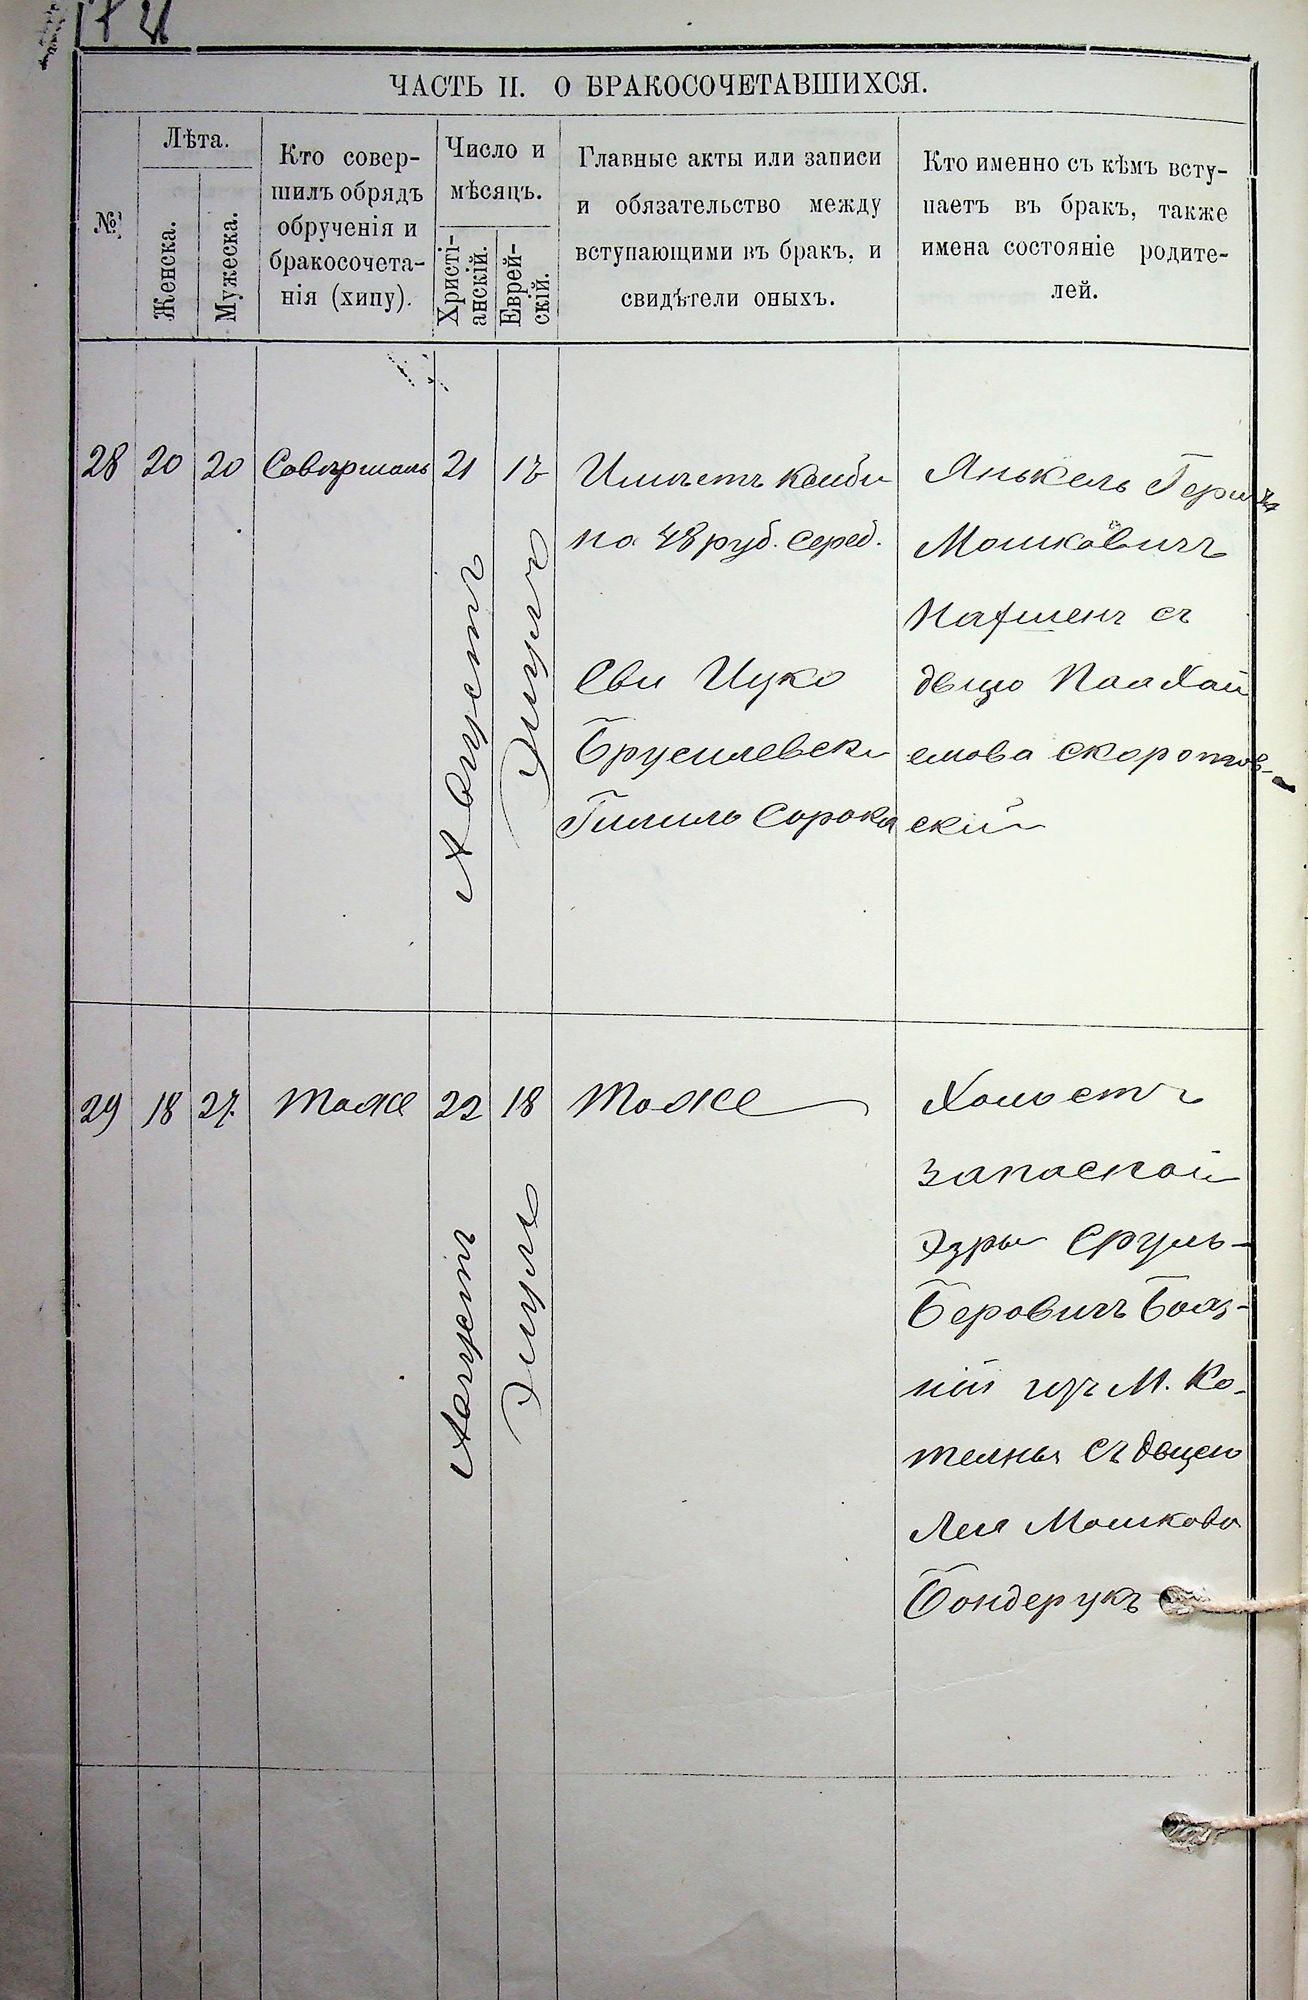 ЧАСТЬ II. О БРАКОСОЧЕТАВШИХСЯ.
№
Лѣта.
Женска.
Мужеска.
Кто совер-
шилъ обрядъ
обрученія и
бракосочета-
нія (хипу).
Число и
мѣсяцъ.
Христі-
анскій.
Еврей-
скій.
Главные акты или записи
и обязательство между
вступающими въ бракъ, и
свидѣтели оныхъ.
Кто именно съ кѣмъ всту-
паетъ въ бракъ, также
имена состояніе родите-
лей.
28
20
20
21
Августъ
17
на 48 руб. сереб.
Сви Ицко
Брусилевск
Сорока
Янькель
Мошковичъ
съ
емова скоропов-
ский
29
18
27.
Тоже
22
Августъ
18
Тоже
Холостъ
запасной
Эзры Сруль-
Беровичъ Бояз-
ний изъ М. Ко-
телнья съ двцею
Лея Мошкова
Бондерукъ